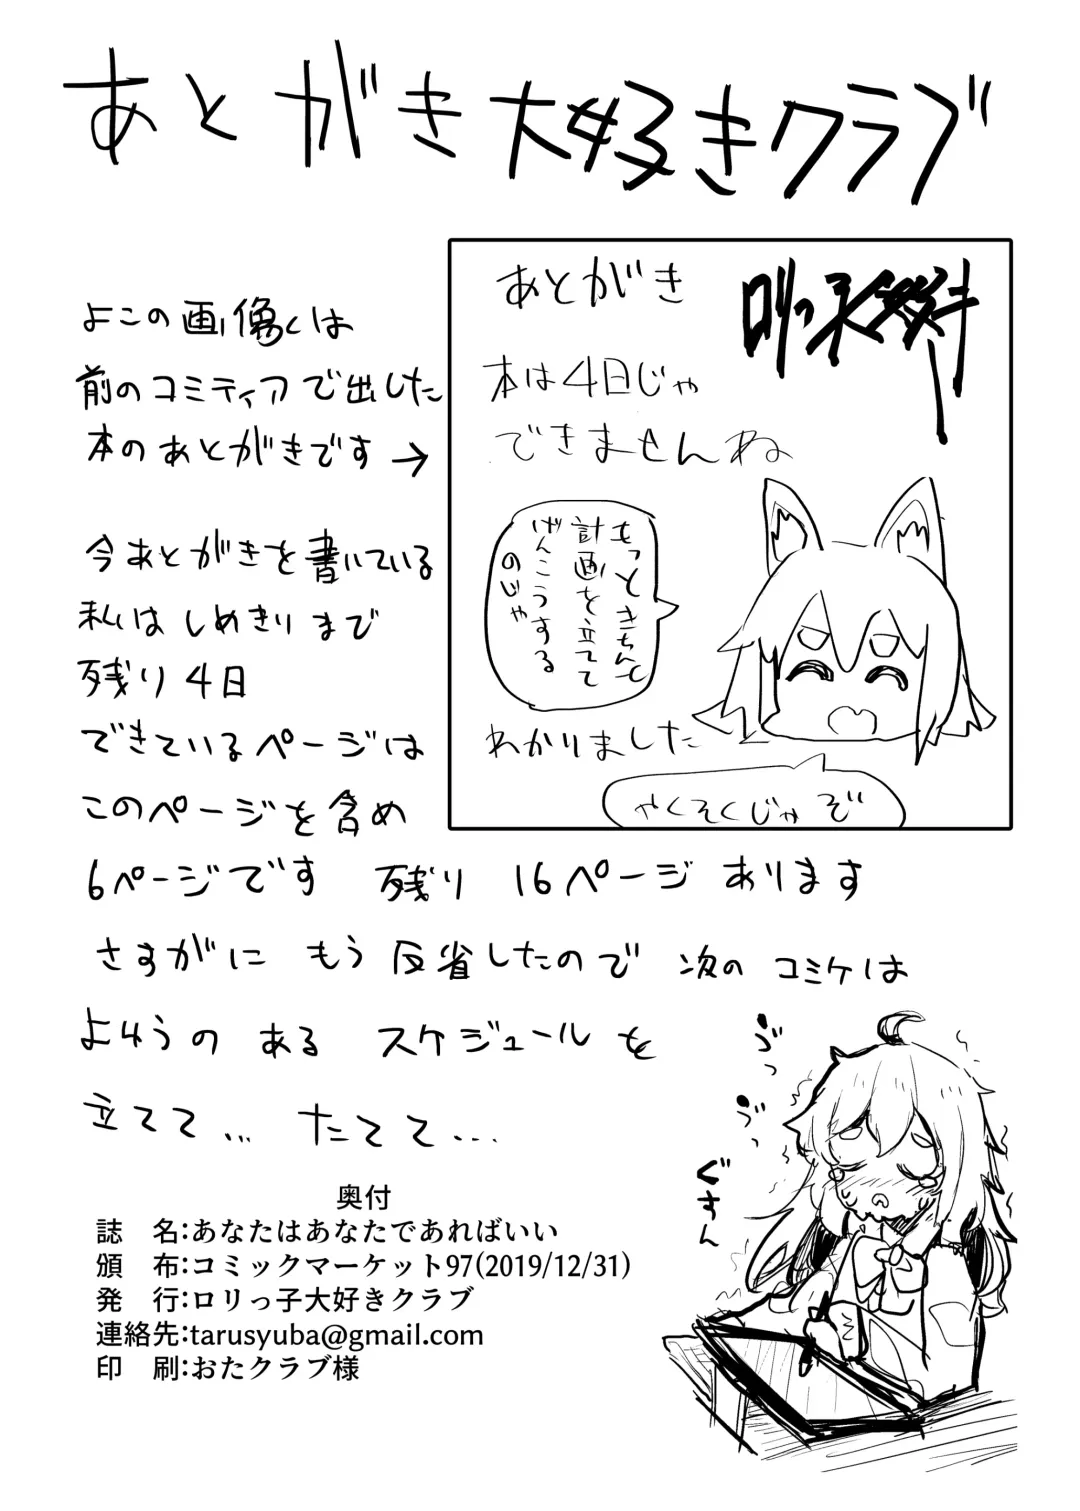 あとがき大好きクラブ
よこの画像くは
前のコミティアで出した
本のあとがきです→
あとがき
本は4日じゃ
できませんね
もっときちんと
計画を立てて
げんこうする
のじゃ
わかりました
やくそくじゃぞ
今あとがきを書いている
私はしめきりまで
残り4日
できているページは
このページを含め
6ページです 残り 16ページ あります
さすがに もう 反省したので 次の コミケは
よゆうの ある スケジュールを
立てて... たてて...
うっ
うっ
ぐすん
奥付
誌 名:あなたはあなたであればいい
頒 布:コミックマーケット97(2019/12/31)
発 行:ロリっ子大好きクラブ
連絡先:tarusyuba@gmail.com
印 刷:おたクラブ様